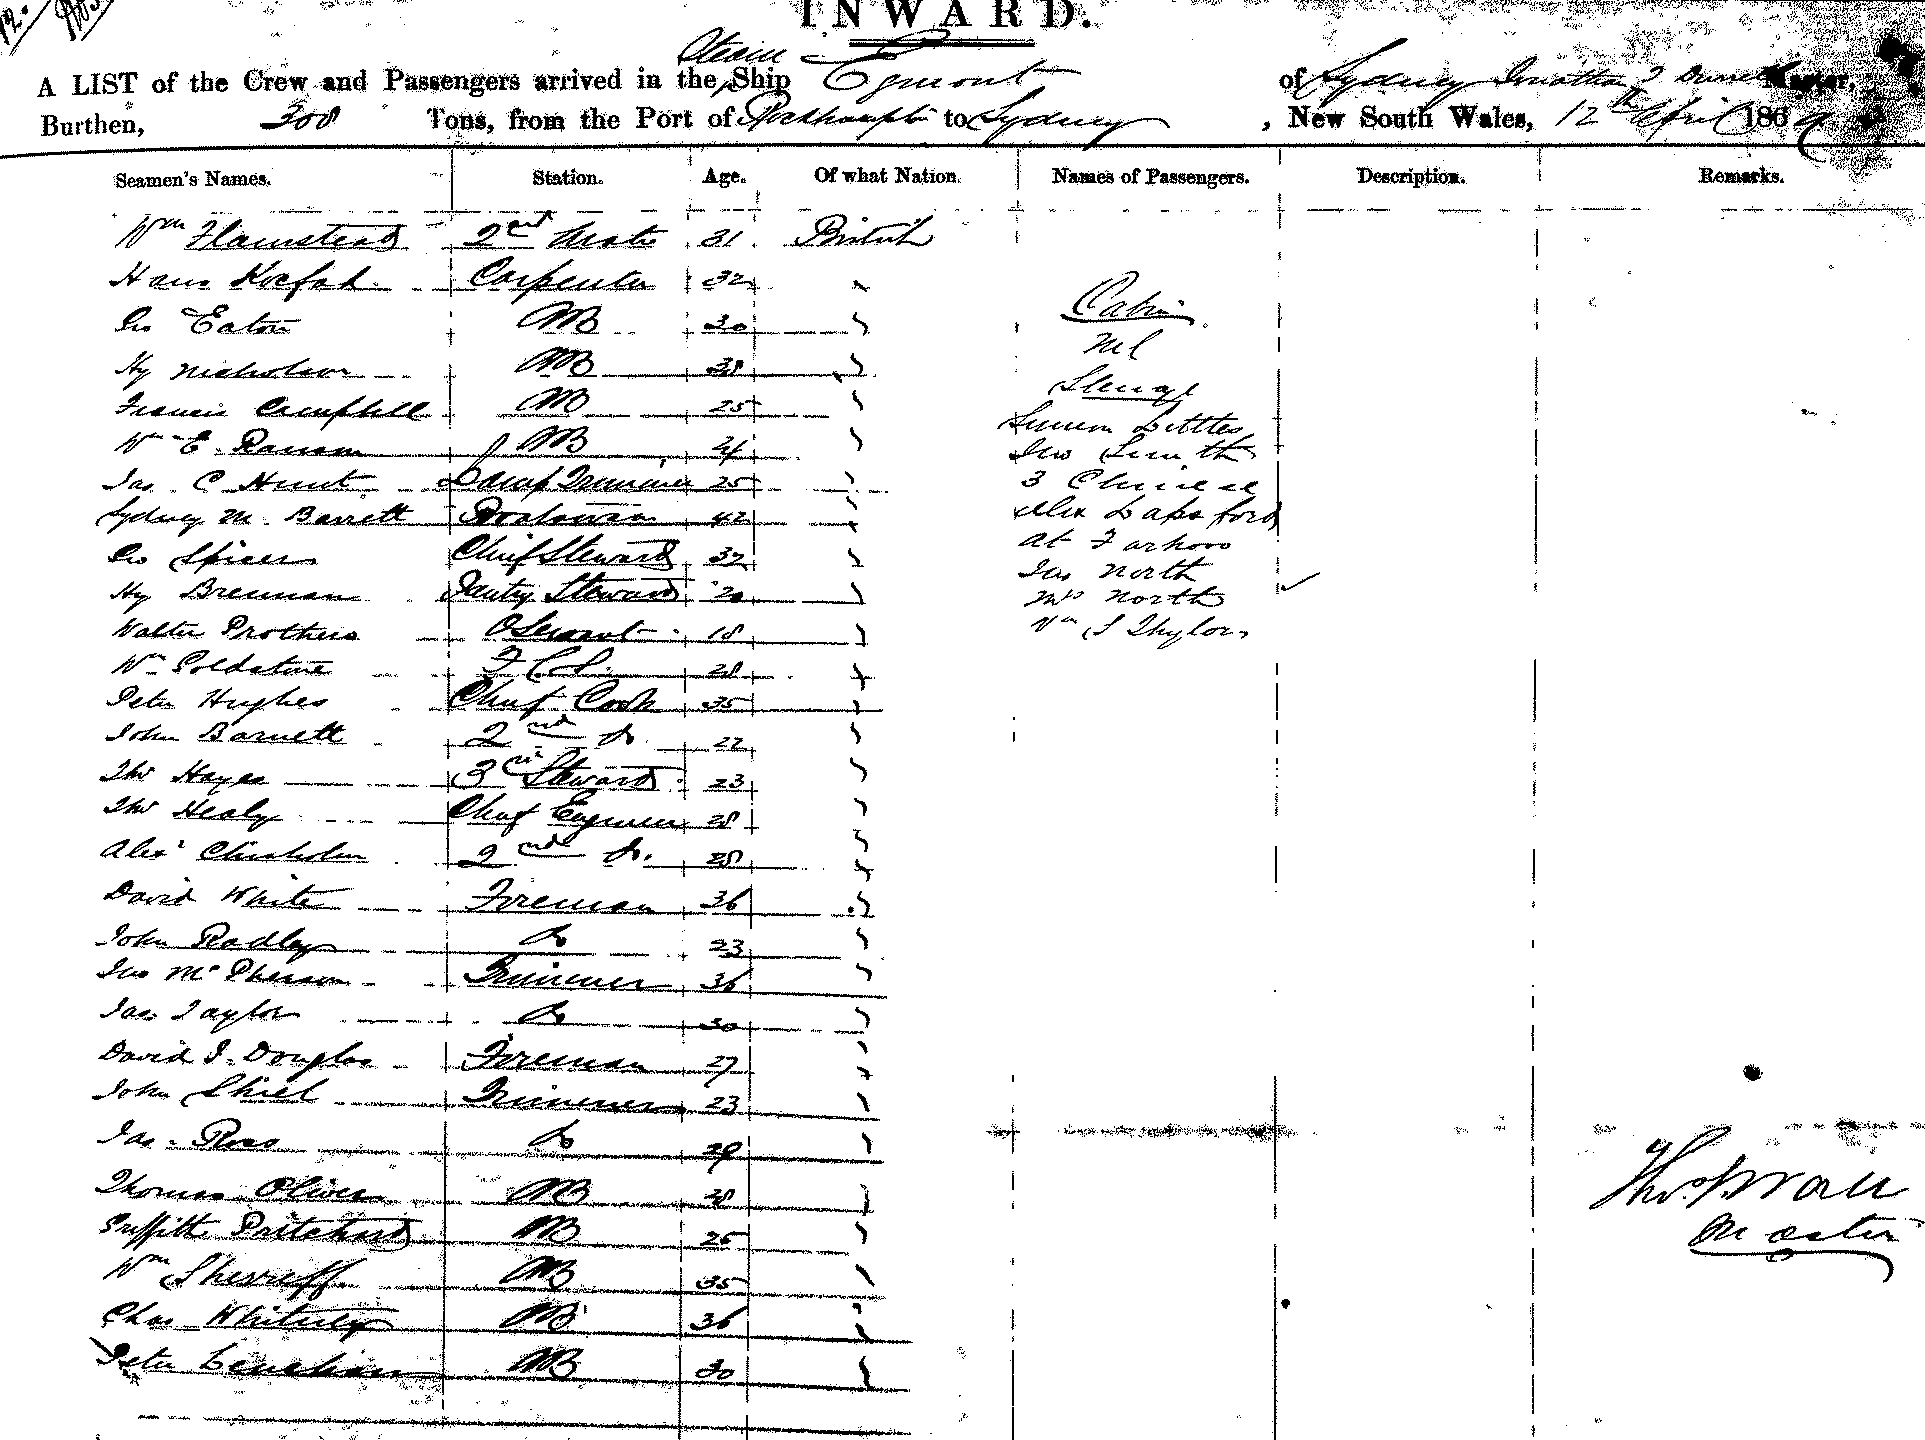 INWARD.
A LIST of the Crew and Passengers arrived in the Steam Ship Egmont of Sydney Master,
Burthen, 308 Tons, from the Port of Rockhampton to Sydney, New South Wales, 12th April 1869
Seamen's Names. Station. Age. Of what Nation. Names of Passengers. Description. Remarks.
Wm Flamstead 2nd Mate 31 British
Hans Carpenter 32 "
Cabin
Geo Eaton AB 30 "
Nil
Hy Nicholson AB 38 "
Steerage
Francis Campbell AB 25 "
Simon Littles
Wm E. Ransom AB 24 "
Jno Smith
Jas C Hunt Lamp Trimmer 25 "
3 Chinese
Sydney M. Barrett Boatswain 42 "
Alex
Geo Spicer Chief Steward 32 "
Hy Brennan Pantry Steward 20 "
Jas North
Mrs North
Walter Prothero 18 "
Wm
Wm Goldstone 28 "
Peter Hughes Chief Cook 35 "
John Barnett 2nd Do 22 "
Thos Hayes 3rd Steward 23 "
Thos Healy Chief Engineer 28 "
Alex Chisholm 2nd Do. 28 "
David White Fireman 36 "
John Radley Do 23 "
Jno McPherson Trimmer 36 "
Jas Taylor Do 30 "
David J. Douglas Fireman 27 "
John Shiel Trimmer 23 "
Jas. Ross Do 29 "
Thomas Oliver AB 28 "
Griffith Pritchard AB 25 "
Master
Wm Sherreff AB 35 "
Chas Whiteley AB 36 "
Peter Lenehan AB 30 "